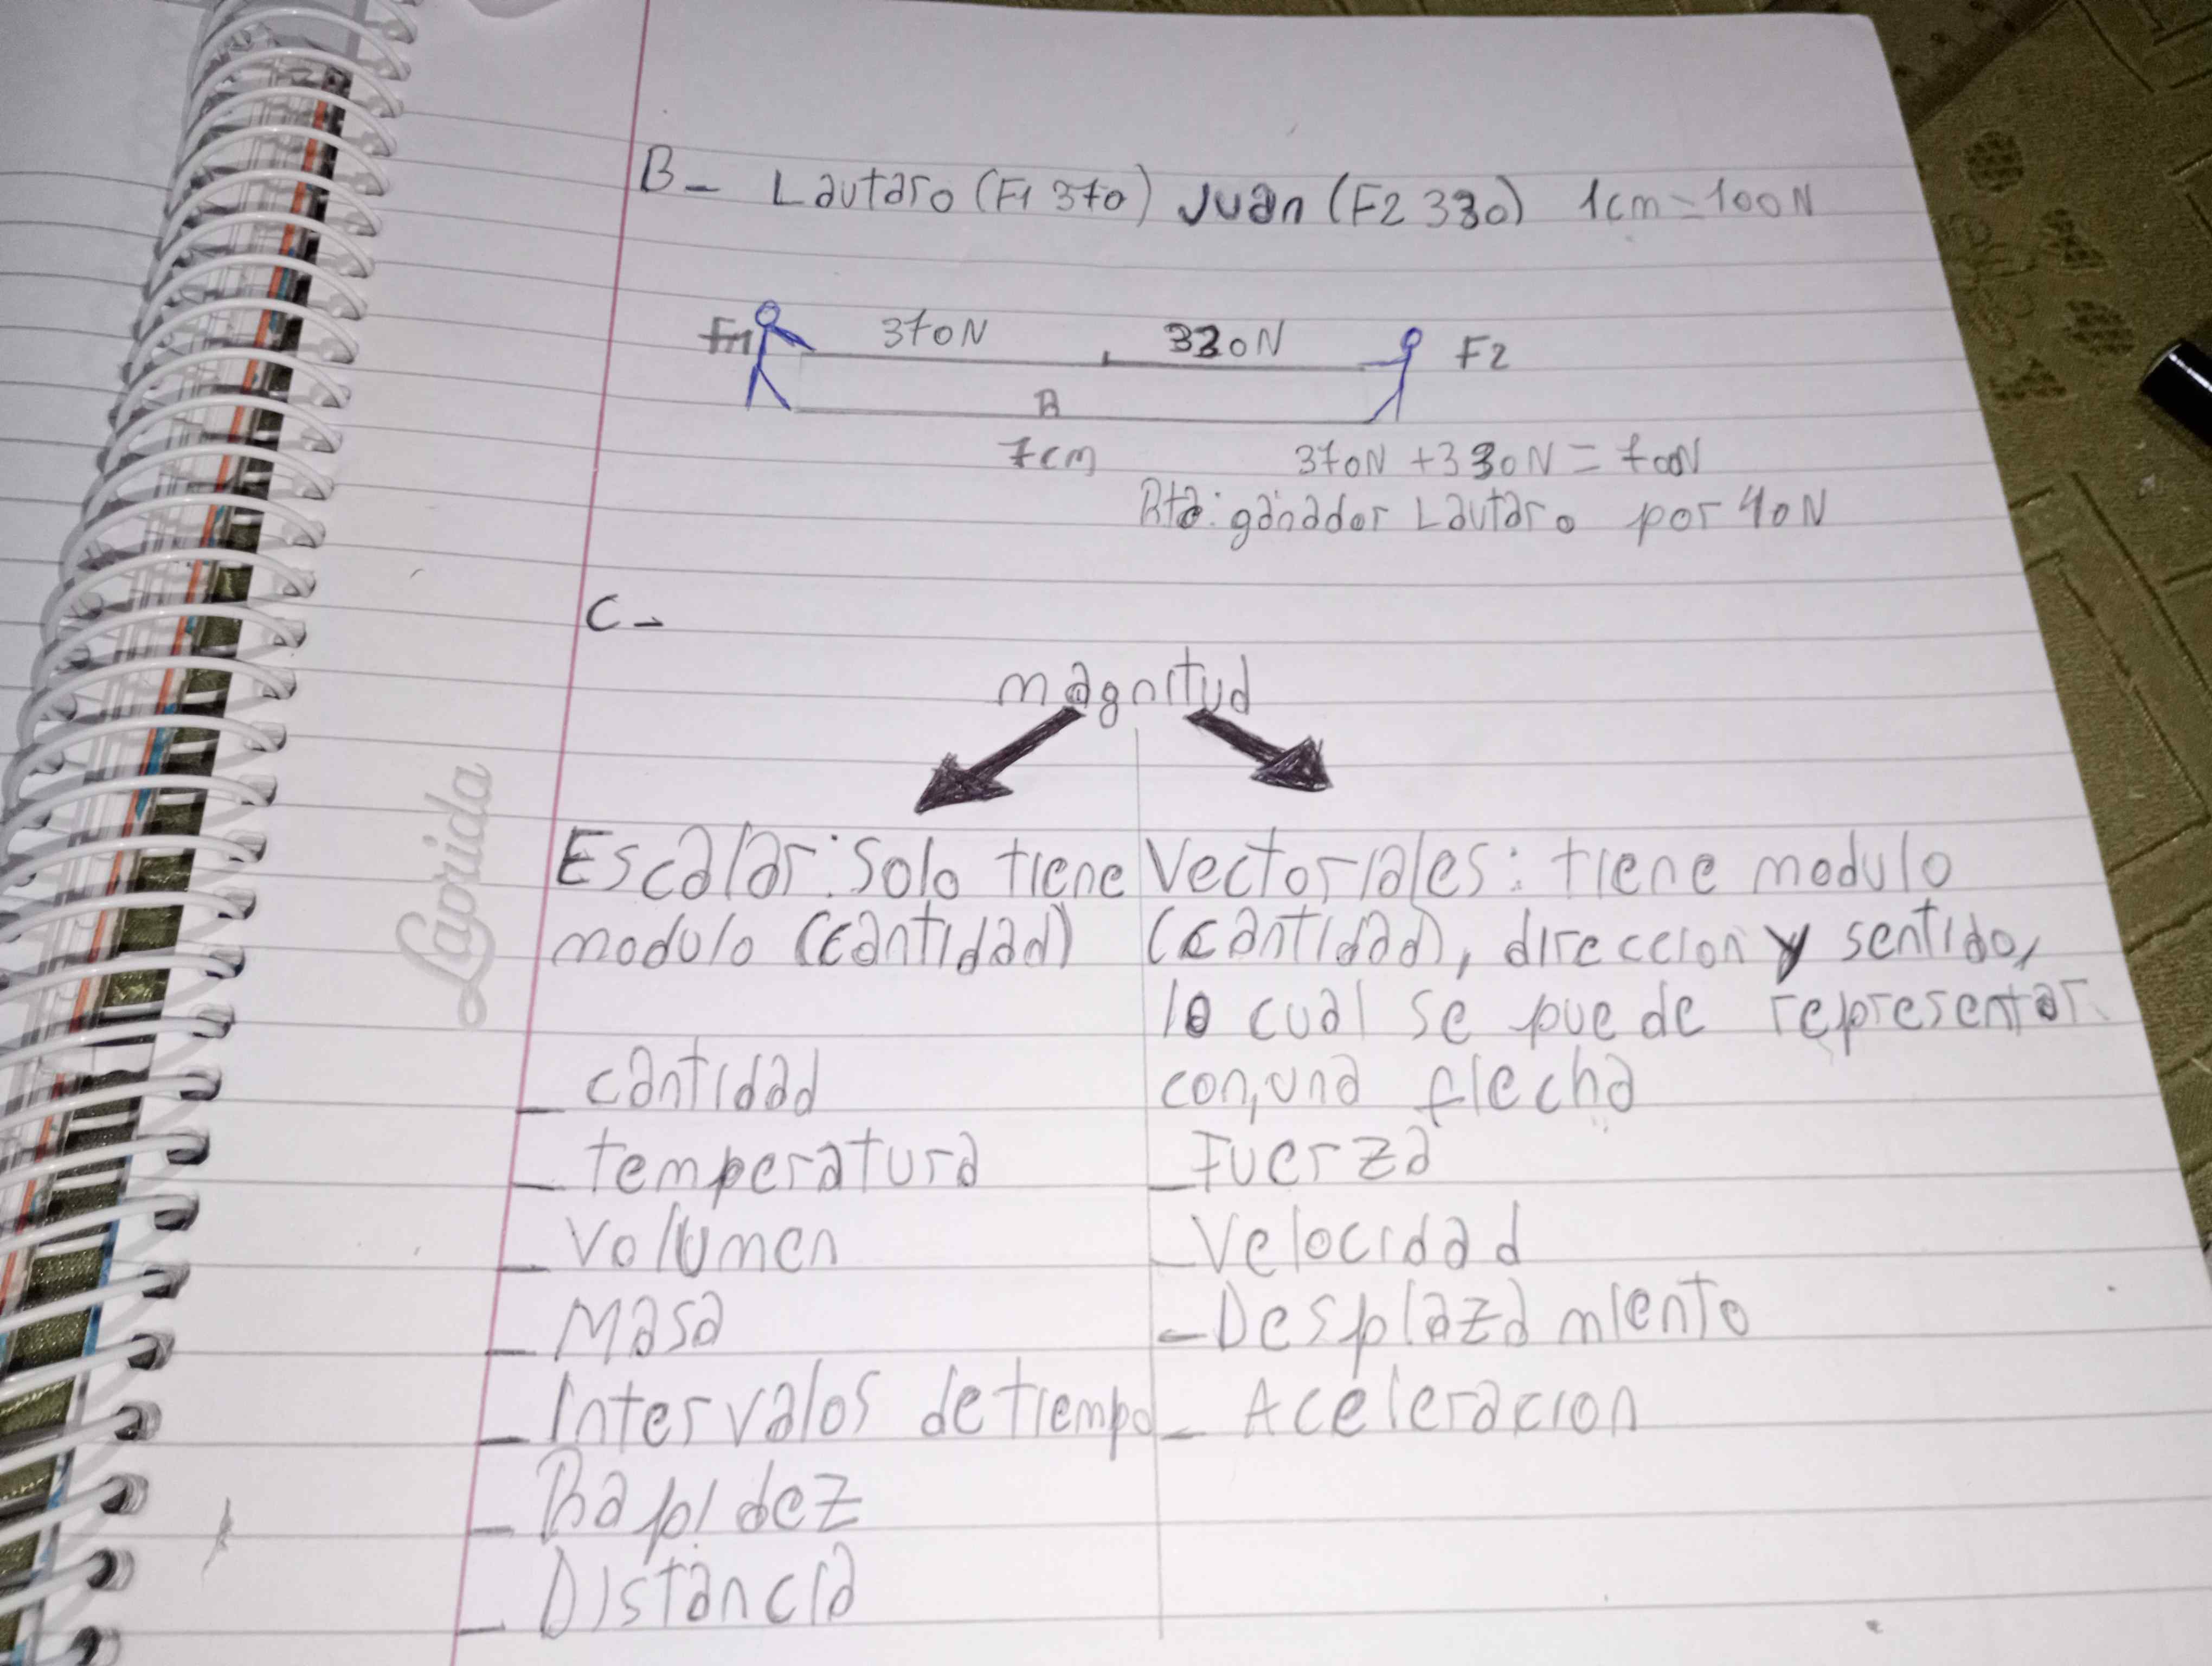 B- Lautaro (F1 370) Juan (F2 330) 1cm=100N
F1 370N 330N F2
B
7cm 370N +330N = 700N
Rta: ganador Lautaro por 40N
C-
magnitud
Escalar: Solo tiene
modulo (cantidad)
Vectoriales: tiene modulo
(cantidad), direccion y sentido,
lo cual se puede representar
con, una flecha
- cantidad
- temperatura
- Volumen
- Masa
- Intervalos de tiempo
- Rapidez
- Distancia
- Fuerza
- Velocidad
- Desplazamiento
- Aceleracion
Laprida